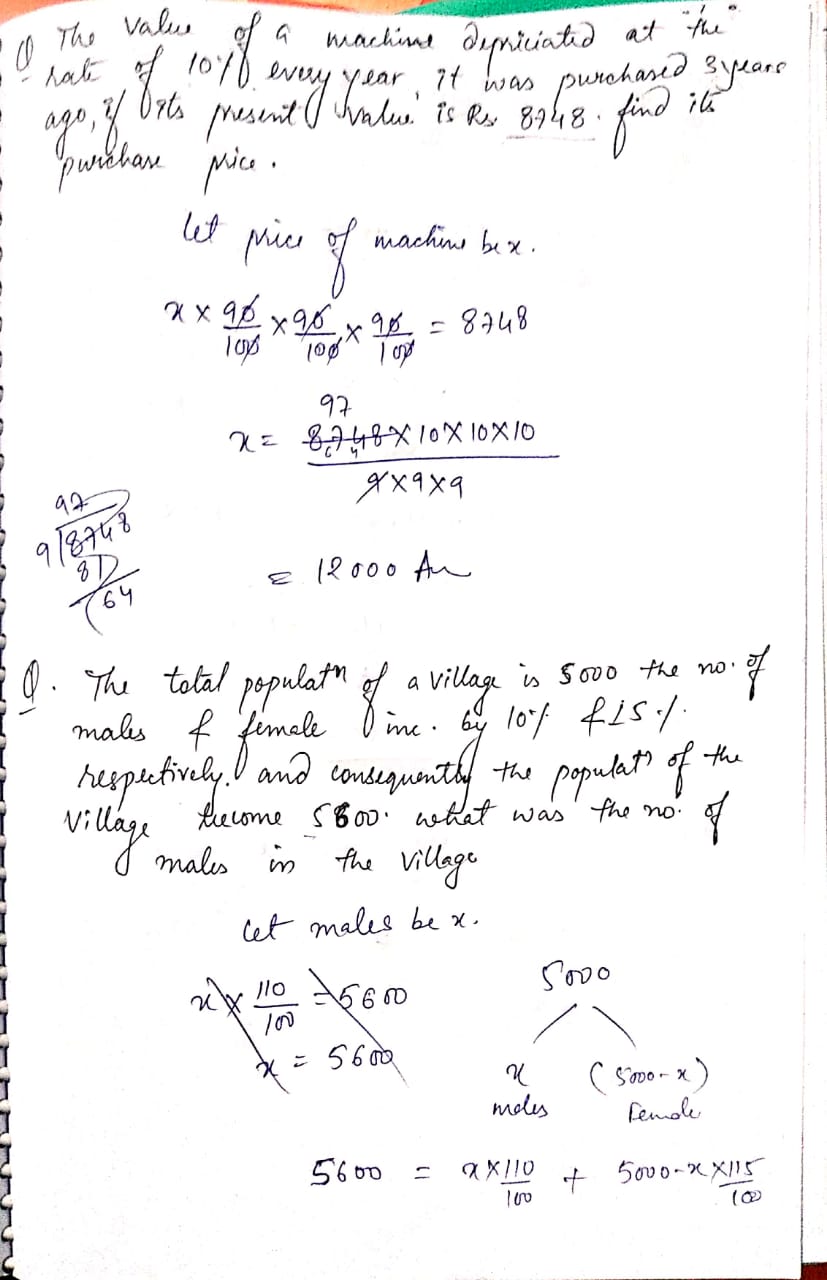 Q The value of a machine depriciated at "the"
rate of 10% every year, it was purchased 3 years
ago, if its present value is Rs. 8748. find its
purchase price.
let price of machine be x.
x × 90/100 × 90/100 × 90/100 = 8748
97
x = 8748 × 10 × 10 × 10
9 × 9 × 9
= 12000 An
97
9 8748
81
64
Q. The total populatn of a village is 5000 the no. of
males & female inc. by 10% & 15%.
respectively. and consequently the populatn of the
Village become 5600. what was the no. of
males in the village
let males be x.
x × 110/100 = 5600
x = 5600
5000
x (5000-x)
males female
5600 = x × 110/100 + 5000-x × 115/100